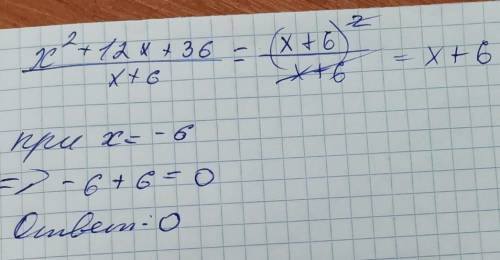 x² + 12x + 36 / x + 6 = (x + 6)² / x + 6 = x + 6
при x = -6
=> -6 + 6 = 0
Ответ: 0